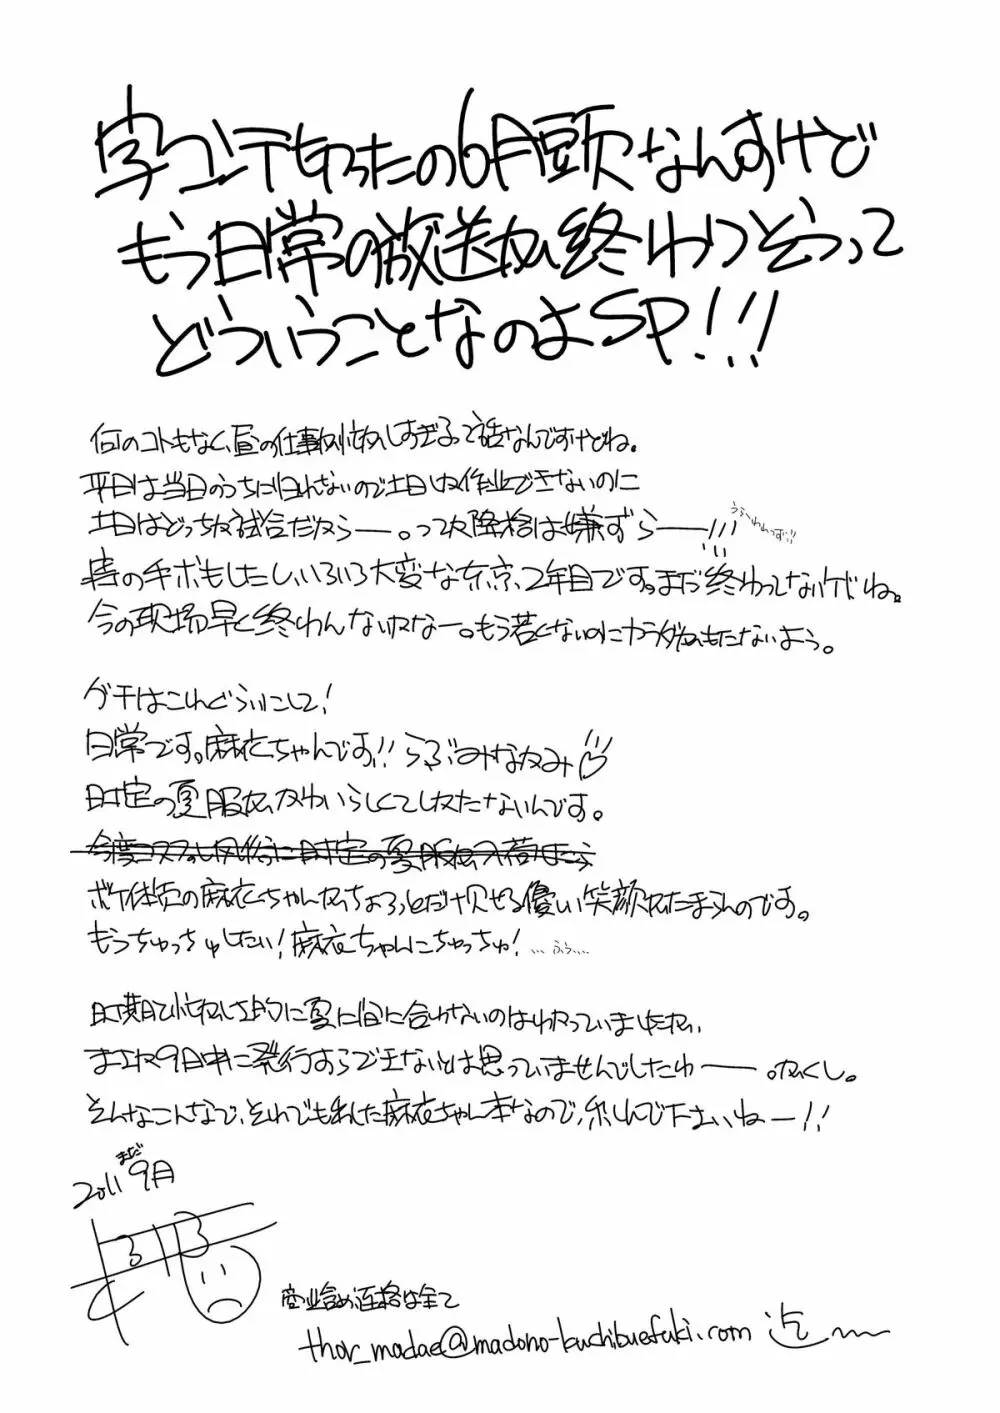 字コンテ切ったの6月頭なんすけど
もう日常の放送が終わりそうって
どういうことなのよSP!!!
何のコトもなく、昼の仕事が忙しすぎるって話なんですけどね。
平日は当日のうちに帰れないので土日しか作業できないのに
土日はどっちか試合だからー。って次降格は嫌ずらー!!!
うら〜われっず!!
嵜の手ボもしたしいろいろ大変な東京、2年目です。まだ終わってないけどね。
今の現場早く終わんないかなー。もう若くないのにカラダがもたないよう。
グチはこれぐらいにして!
日常です。麻衣ちゃんです!!らぶみなかみ♡
時定の夏服がかわいらしくてしかたないんです。
今度コスプレ風俗に時定の夏服が入荷
ボケ体質の麻衣ちゃんがちょろっとだけ見せる優しい笑顔がたまらんのです。
もうちゅっちゅしたい!麻衣ちゃんにちゅっちゅ! …ふぅ…
時期的に夏に間に合わないのはわかっていましたが、
まさか9月中に発行すらできないとは思っていませんでしたわー。がくし。
そんなこんなで、それでも出した麻衣ちゃん本なので、楽しんで下さいねー!!
まだ
2011 9月
商業含め連絡は全て
thor_madae@madono-kuchibuefuki.com 迄〜